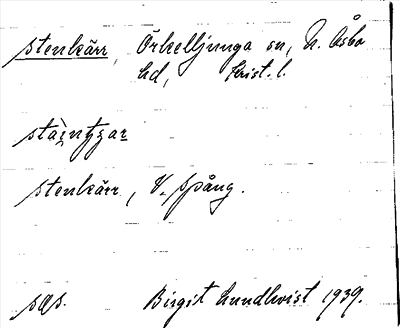 stenkärr, Örkelljunga sn, N. Åsbo
hd, Krist. l.
stenkärr, V. spång.
Birgit Lundkvist 1939.